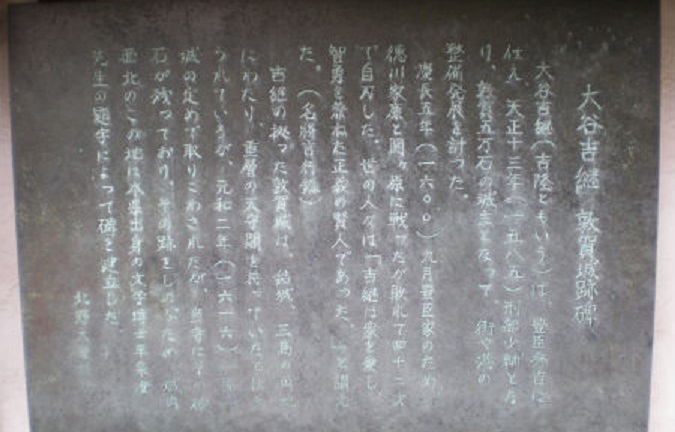 大谷吉継 敦賀城跡碑
大谷吉継(吉隆ともいう)は、豊臣秀吉に
仕え、天正十三年(一五八五)刑部少輔とな
り、敦賀五万石の城主となって、街や港の
整備発展を計った。
慶長五年(一六〇〇)九月豊臣家のため、
徳川家康と関ヶ原に戦ったが敗れて四十二才
で自刃した。世の人々は「吉継は衆を愛し、
智勇を兼ねた正義の賢人であった。」と讃え
た。(名将言行録)
吉継の拠った敦賀城は、結城、三島の
にわたり、三層の天守閣を持っていたと
られているが、元和二年(一六一六)
城の定めで取りこわされたが、
石が残っており、その跡をしのぶため
西北のこの地に 出身の文学博士平泉澄
先生の題字によって碑を建立した。